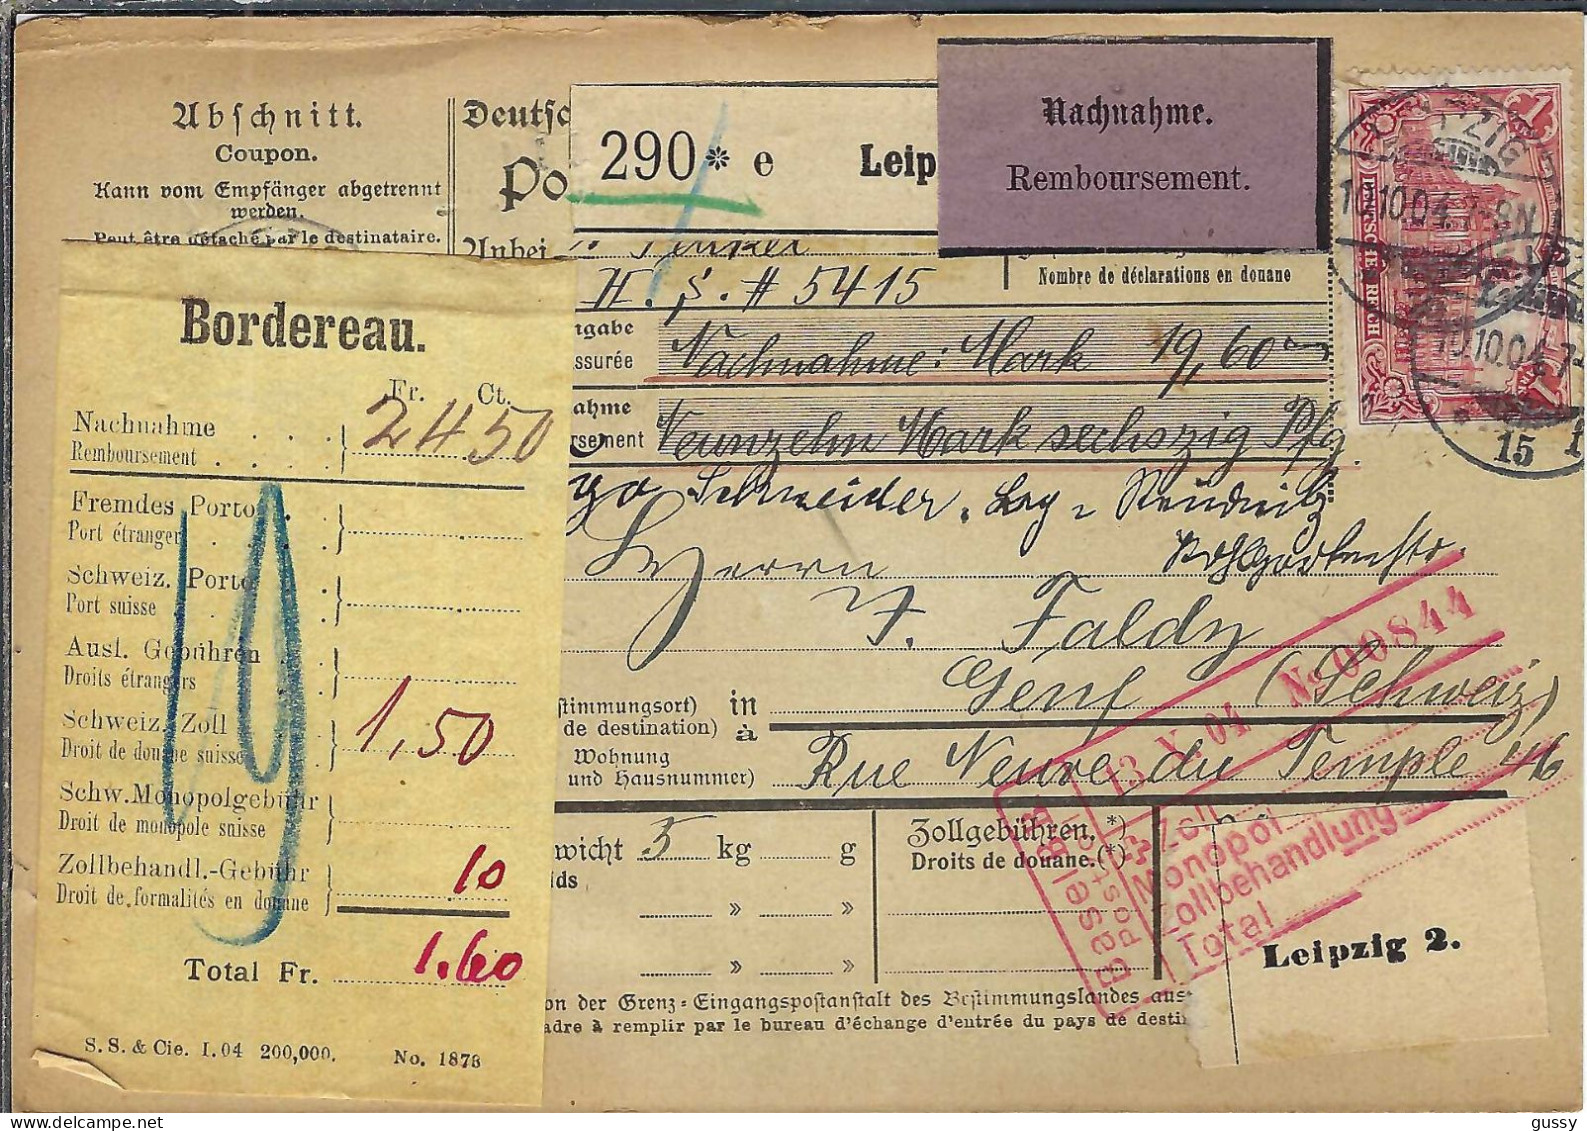 Abschnitt.
Coupon.
Kann vom Empfänger abgetrennt
werden.
Peut être détaché par le destinataire.
Deutsc
Po
Anbei
290* e Leip
Nachnahme.
Remboursement.
H. S. # 5415
Nombre de déclarations en douane
ngabe
ssurée
Nachnahme: Mark 19,60
ahme
rsement
Neunzehn Mark sechszig Pfg.
go Schneider, Lpzg-Reudnitz
Kohlgartenstr.
Herrn
F. Faldy
Genf (Schweiz)
stimmungsort) in
de destination) à
Wohnung
und Hausnummer)
Rue Neuve du Temple 46
wicht 5 kg g
ids
» »
» »
Zollgebühren.*)
Droits de douane.(*)
on der Grenz-Eingangspostanstalt des Bestimmungslandes aus
adre à remplir par le bureau d'échange d'entrée du pays de destin
Leipzig 2.
Bordereau.
Fr. Ct.
Nachnahme . . . 24 50
Remboursement . . .
Fremdes Porto . .
Port étranger . .
Schweiz. Porto
Port suisse . . .
Ausl. Gebühren .
Droits étrangers
Schweiz. Zoll . . 1,50
Droit de douane suisse
Schw. Monopolgebühr
Droit de monopole suisse
Zollbehandl.-Gebühr 10
Droit de formalités en douane
Total Fr. 1.60
S. S. & Cie. I. 04 200,000. No. 1878
19
13 X. 04 No 00844
Basel
Zoll
Monopol
Zollbehandlung
Total
LEIPZIG
10.10.04. 7-8N.
10.10.04. 7-
15
1
DEUTSCHES REICH
1